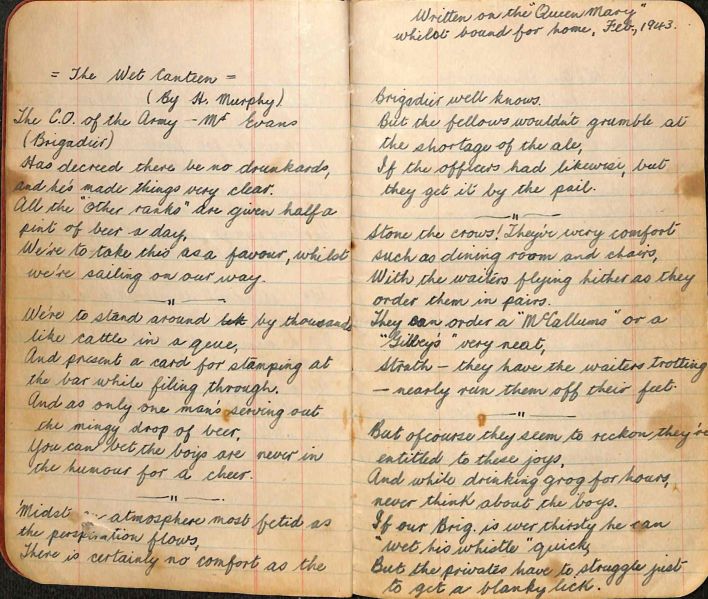 = The Wet Canteen =
(By H. Murphy)
The C.O. of the Army - Mr Evans
(Brigadier)
Has decreed there be no drunkards,
and he's made things very clear.
All the "other ranks" are given half a
pint of beer a day,
We're to take this as a favour, whilst
we're sailing on our way.
We're to stand around by thousands
like cattle in a queue,
And present a card for stamping at
the bar while filing through.
And as only one man's serving out
the mingy drop of beer,
You can bet the boys are never in
the humour for a cheer.
'Midst atmosphere most fetid as
the perspiration flows,
There is certainly no comfort as the
Written on the "Queen Mary"
whilst bound for home, Feb., 1943.
Brigadier well knows.
But the fellows wouldn't grumble at
the shortage of the ale,
If the officers had likewise, but
they get it by the pail.
Stone the crows! They've every comfort
such as dining room and chairs,
With the waiters flying hither as they
order them in pairs.
They can order a "McCallums" or a
"Gilbey's" very neat,
Struth - they have the waiters trotting
- nearly run them off their feet.
But ofcourse they seem to reckon they're
entitled to these joys,
And while drinking grog for hours,
never think about the boys.
If our Brig. is ever thirsty he can
"wet his whistle" quick,
But the privates have to struggle just
to get a blanky lick.